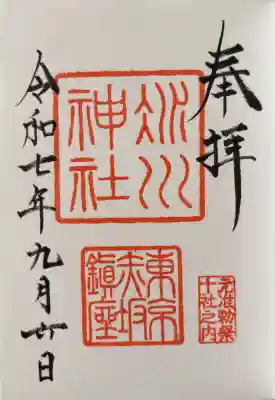 奉拝
氷川
神社
東京
赤坂
鎮座
准勅祭
十社之内
令和七年九月廿日